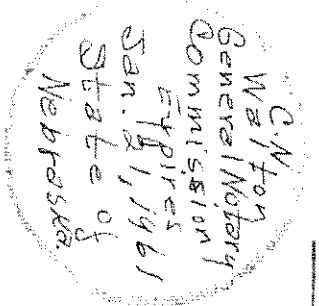 C.N.
Walton
General Notary
Commission
Expires
Jan. 21, 1961
State of
Nebraska